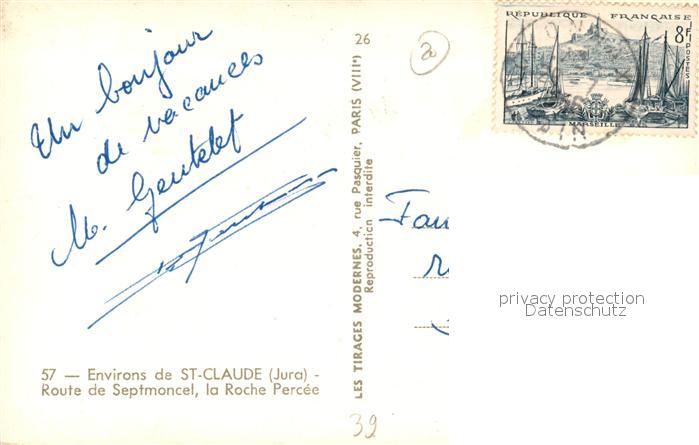 Un bonjour
de vacances
M. Gentelet
57 — Environs de ST-CLAUDE (Jura) -
Route de Septmoncel, la Roche Percée
26
LES TIRAGES MODERNES, 4, rue Pasquier, PARIS (VIIIe)
Reproduction interdite
39
20
RÉPUBLIQUE FRANÇAISE
8F
POSTES
MARSEILLE
privacy protection
Datenschutz